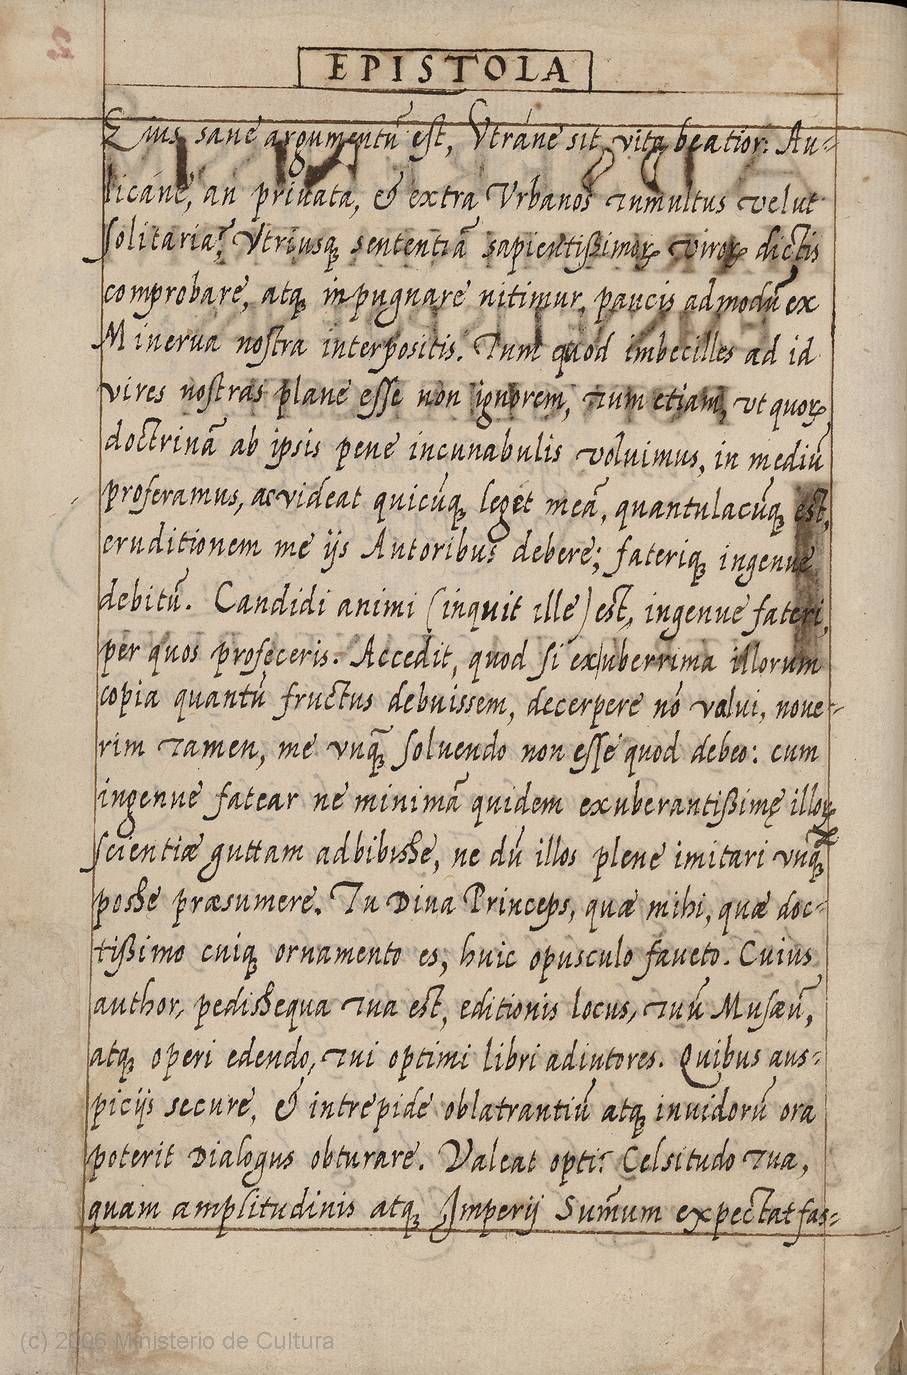 EPISTOLA
Eius sane argumentũ est, Vtráne sit vita beatior: Au-
licáne, an priuata, & extra Vrbanos tumultus velut
solitaria? Vtriusq; sententiã sapientißimoꝝ viroꝝ dictis
comprobare, atq; inpugnare nitimur, paucis admodũ ex
Minerua nostra interpositis. Tum quod imbecilles ad id
vires nostras plane esse non ignorem, tum etiam, vt quoꝝ
doctrinã ab ipsis pene incunabulis voluimus, in mediũ
proferamus, ac videat quicũq; leget meã, quantulacũq; est,
eruditionem me ijs Autoribus debere; fateriq; ingenue
debitũ. Candidi animi (inquit ille) est, ingenue fateri,
per quos profeceris. Accedit, quod si exuberrima illorum
copia quantũ fructus debuissem, decerpere nõ valui, noue-
rim tamen, me vnq̃; soluendo non esse quod debeo: cum
ingenue fatear ne minimã quidem exuberantißimę illoꝝ
scientiæ guttam adbibisse, ne dũ illos plene imitari vnq̃;
posse præsumere. Tu Diua Princeps, quæ mihi, quæ doc-
tißimo cuiq; ornamento es, huic opusculo faueto. Cuius
author, pedissequa tua est, editionis locus, tuũ Musæũ,
atq; operi edendo, tui optimi libri adiutores. Quibus aus-
picijs secure, & intrepide oblatrantiũ atq; inuidorũ ora
poterit Dialogus obturare. Valeat opti: Celsitudo tua,
quam amplitudinis atq; Imperij Sum̃um expectat fas-
(c) 2006 Ministerio de Cultura